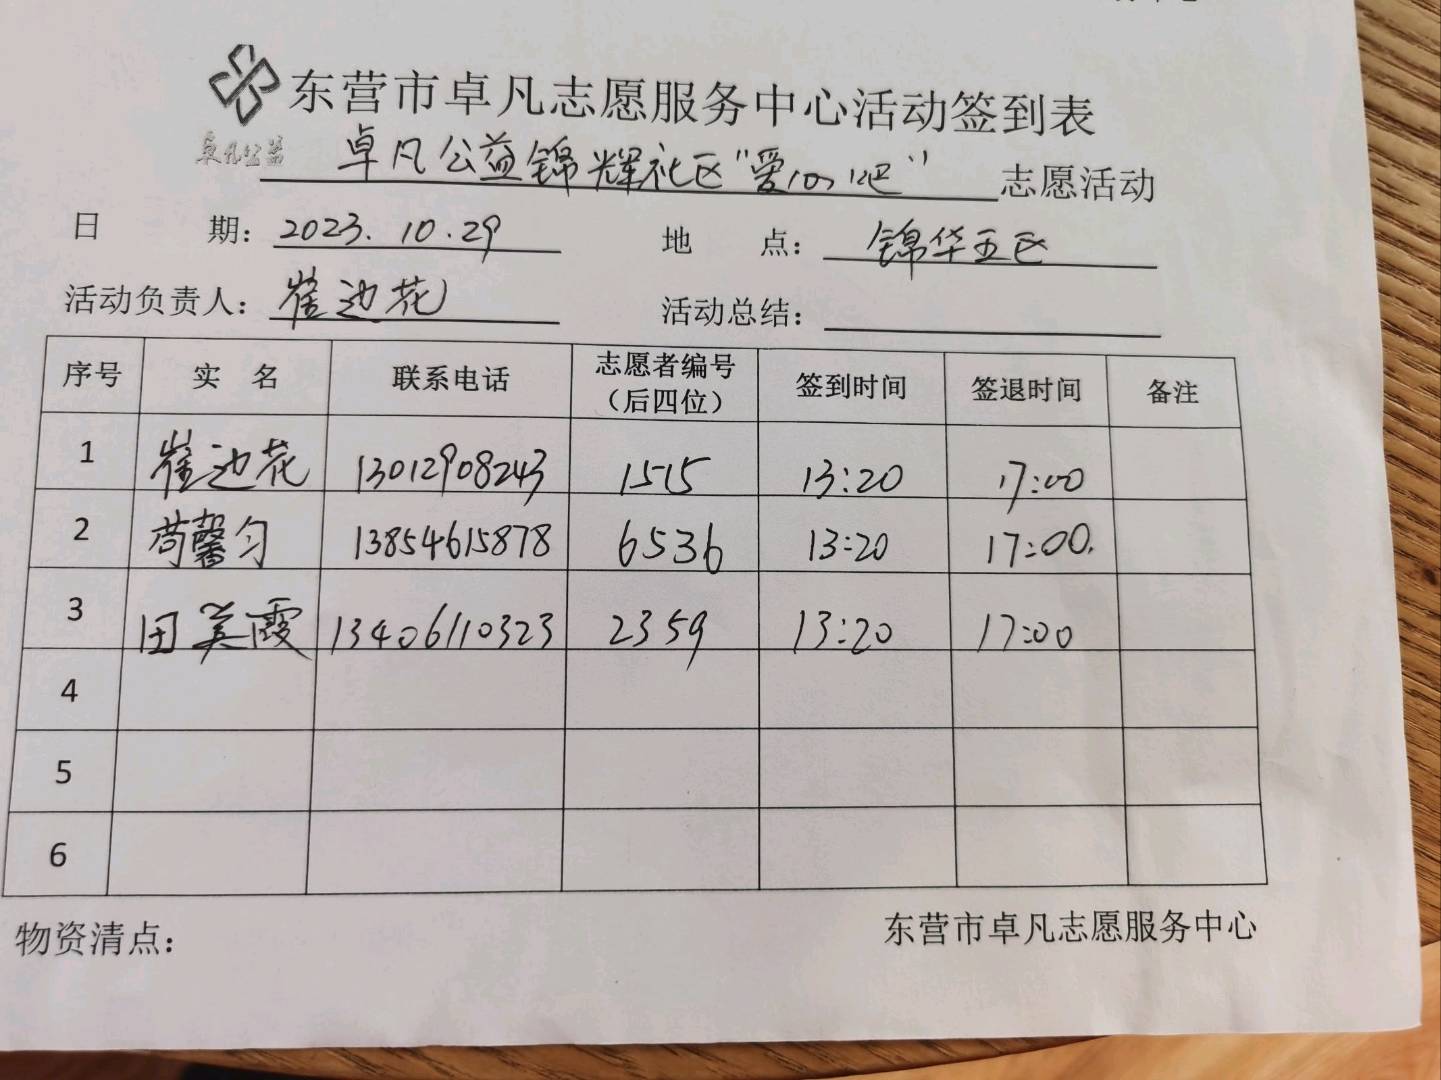 东营市卓凡志愿服务中心活动签到表
卓凡公益
卓凡公益锦辉社区"爱心吧"志愿活动
日 期：2023.10.29 地 点：锦华五区
活动负责人：崔边花 活动总结：
序号 实 名 联系电话 志愿者编号（后四位） 签到时间 签退时间 备注
1 崔边花 13012908243 1515 13:20 17:00
2 苟馨匀 13854615878 6536 13:20 17:00.
3 田美霞 13406110323 2359 13:20 17:00
4
5
6
物资清点： 东营市卓凡志愿服务中心